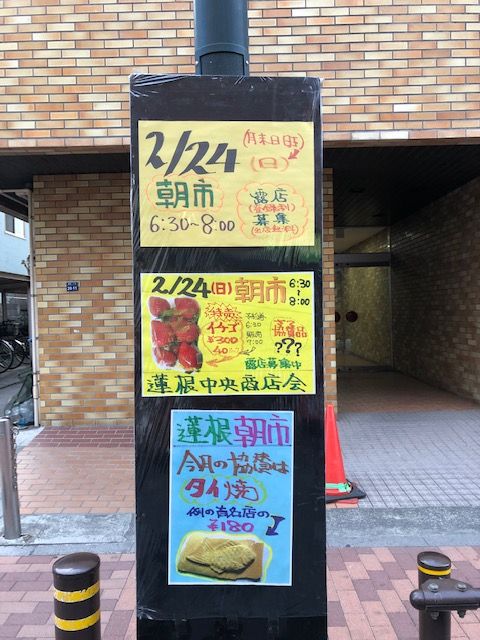 (月末日時)
2/24(日)
朝市
6:30~8:00
露店
(登録あり)
募集
(出店無料)
2/24(日)朝市 6:30
~
8:00
特売
イチゴ
¥300
40コ
6:30
販売
7:00
協賛品
???
露店募集中
蓮根中央商店会
蓮根朝市
今月の協賛は
タイ焼
例の有名店の
¥180